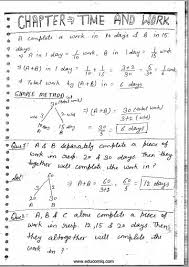 CHAPTER - TIME AND WORK
A complete a work in 10 days & B in 15
days
→ A in 1 day = 1/10 work, B in 1 day = 1/15 work
→ (A+B) in 1 day = 1/10 + 1/15 = 3+2/30 = 5/30 = 1/6 work
→ Total work by (A+B) in = 6 days
SIMPLE METHOD →
30 (total work)
3 2
A B
10 days 15 day
⇒ (A+B) = 30 (total work)/3+2 (work)
= 30/5 = 6 days
Ques: A & B separately complete a piece of
work in resp. 20 & 30 days Then they
together will complete the work in ?
Sol
60
3 2
A B
20 30
⇒ (A+B) = 60/3+2 = 60/5 = 12 days
Ques: A, B & C alone complete a piece of
work in resp. 12, 15 & 20 days Then,
they altogether will complete the work
in ?
www.educoming.com